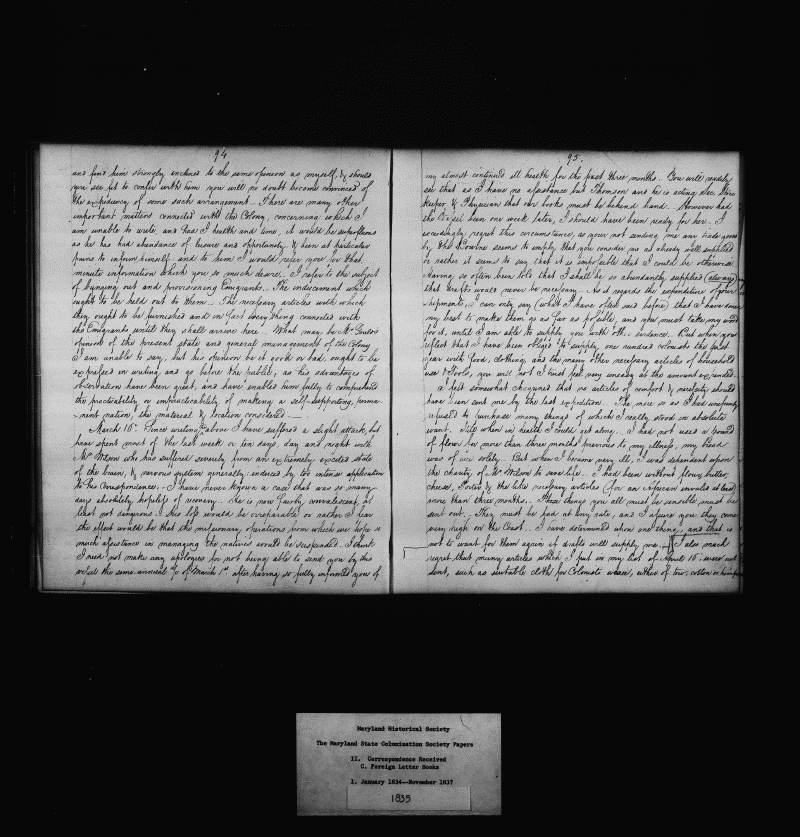 94
and find him strongly inclined to the same opinion as myself, & should
you see fit to confer with him you will no doubt become convinced of
the expediency of some such arrangement. There are many other
important matters connected with the Colony, concerning which I
am unable to write, and had I health and time, it would be superfluous
as he has had abundance of leisure and opportunity, & been at particular
pains to inform himself, and to him I would refer you for that
minute information which you so much desire. I refer to the subject
of bringing out and provisioning Emigrants. The inducement which
ought to be held out to them. The necessary articles with which
they ought to be furnished and in fact every thing connected with
the Emigrants until they shall arrive here. What may be Mr
opinion of the present state and general management of the Colony
I am unable to say, but his opinion be it good or bad, ought to be
expressed in writing and go before the public, as his advantages of
observation have been great, and have enabled him fully to comprehend
the practicability or impracticability of making a self-supporting, perma-
-nent nation, the material & location considered.
March 16th. Since writing above I have suffered a slight attack, but
have spent most of the last week or ten days, day and night with
Mr Wilson who has suffered severely from an extremely excited state
of the brain, & nervous system generally: induced by too intense application
to his correspondence. I have never known a case that was so many
days absolutely hopeless of recovery. He is now slowly convalescent, at
least not dangerous. His life would be irreparable or rather I fear
the effect would be that the missionary operations from which we hope so
much assistance in managing the natives would be suspended. I think
I need not make any apologies for not being able to send you by this
vessel the semi-annual a/c of March 1st after having so fully informed you of
95.
my almost continued ill health for the past three months. You will readily
see that as I have no assistance but Thomson and he is acting Sec. Store
Keeper & Physician that our books must be behind hand. However had
the Brig been one week later, I should have been ready for her. I
exceedingly regret this circumstance, as your not sending me any trade goods
by the Bourne seems to imply that you consider me as already well supplied
or rather it seems to say that it is impossible that I could be otherwise
having so often been told that I shall be so abundantly supplied (always)
that drafts would never be necessary. As it regards the expenditure of your
shipments, I can only say (what I have often said before) that I have done
my best to make them go as far as possible, and you must take my word
for it, until I am able to supply you with other evidence. But when you
reflect that I have been obliged to supply one hundred colonists the past
year with food, clothing, and the many other necessary articles of household
use & tools, you will not I trust feel very uneasy at the amount expended.
I felt somewhat chagrined that no articles of comfort & necessity should
have been sent me by the last expedition. The more so as I had uniformly
refused to purchase many things of which I really stood in absolute
want. Still when in health I could get along. I had not used a pound
of flour for more than three months previous to my illness, my bread
was of rice solely. But when I became very ill, I was dependent upon
the charity of Mr Wilson to save life. I had been without flour, butter,
cheese, Porter & the like necessary articles (for an African invalid at least)
more than three months. These things you all must be sensible, must be
sent out. They must be had at any rate, and I assure you they come
very high on the Coast. I have determined upon one thing, and that is
not to want for them again if drafts will supply me. I also much
regret that many articles which I put in my list of April 15th were not
sent, such as suitable cloth for Colonists wear, either of tow, cotton or
Maryland Historical Society
The Maryland State Colonization Society Papers
II. Correspondence Received
C. Foreign Letter Books
1. January 1834--November 1837
1835